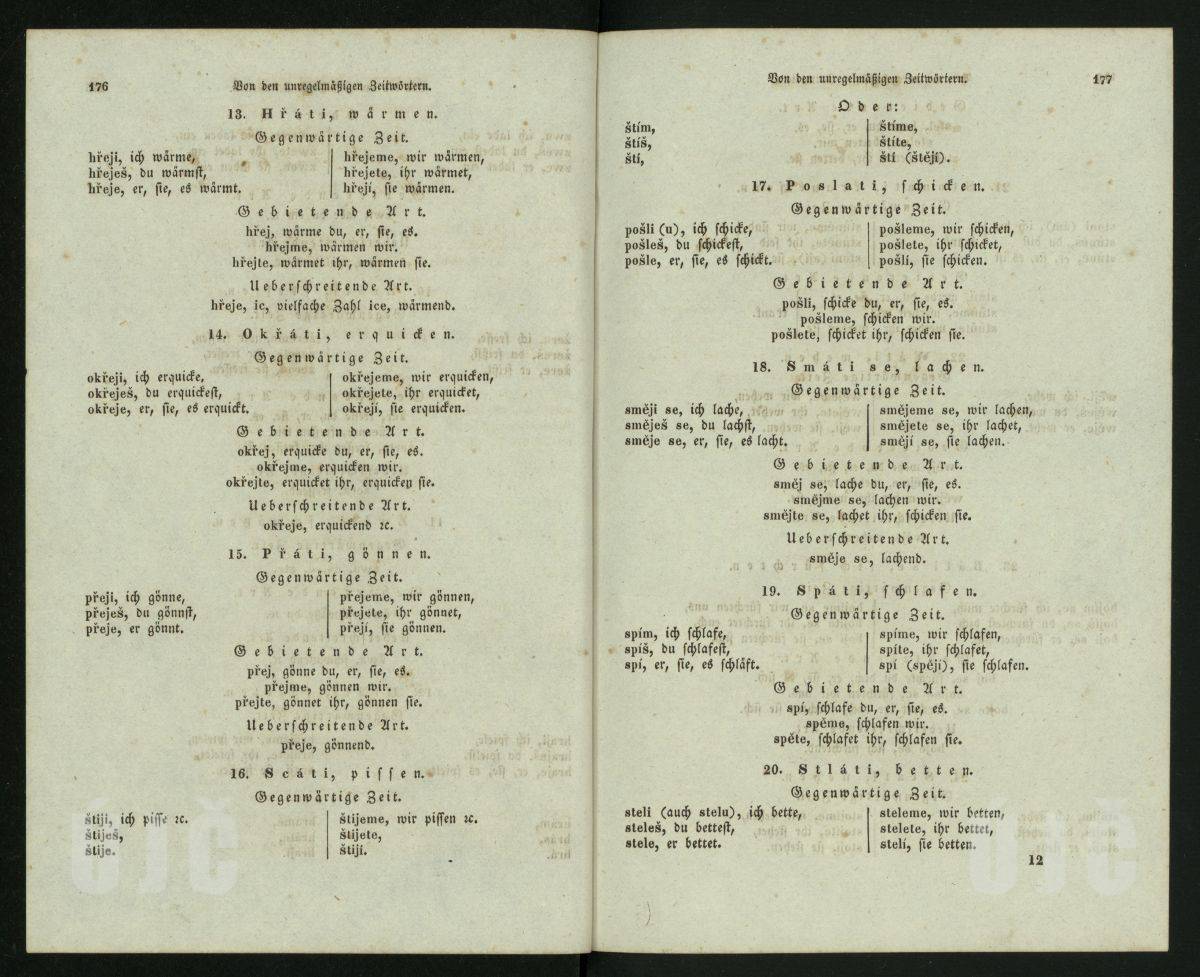 176
Von den unregelmäßigen Zeitwörtern.
13. Hřáti, wärmen.
Gegenwärtige Zeit.
hřeji, ich wärme,
hřeješ, du wärmst,
hřeje, er, sie, es wärmt.
hřejeme, wir wärmen,
hřejete, ihr wärmet,
hřejí, sie wärmen.
Gebietende Art.
hřej, wärme du, er, sie, es.
hřejme, wärmen wir.
hřejte, wärmet ihr, wärmen sie.
Ueberschreitende Art.
hřeje, ic, vielfache Zahl ice, wärmend.
14. Okřáti, erquicken.
Gegenwärtige Zeit.
okřeji, ich erquicke,
okřeješ, du erquickest,
okřeje, er, sie, es erquickt.
okřejeme, wir erquicken,
okřejete, ihr erquicket,
okřejí, sie erquicken.
Gebietende Art.
okřej, erquicke du, er, sie, es.
okřejme, erquicken wir.
okřejte, erquicket ihr, erquicken sie.
Ueberschreitende Art.
okřeje, erquickend ꝛc.
15. Přáti, gönnen.
Gegenwärtige Zeit.
přeji, ich gönne,
přeješ, du gönnst,
přeje, er gönnt.
přejeme, wir gönnen,
přejete, ihr gönnet,
přejí, sie gönnen.
Gebietende Art.
přej, gönne du, er, sie, es.
přejme, gönnen wir.
přejte, gönnet ihr, gönnen sie.
Ueberschreitende Art.
přeje, gönnend.
16. Scáti, pissen.
Gegenwärtige Zeit.
štiji, ich pisse ꝛc.
štiješ,
štije.
štijeme, wir pissen ꝛc.
štijete,
štijí.
Von den unregelmäßigen Zeitwörtern.
177
Oder:
štím,
štíš,
ští,
štíme,
štíte,
ští (štějí).
17. Poslati, schicken.
Gegenwärtige Zeit.
pošli (u), ich schicke,
pošleš, du schickest,
pošle, er, sie, es schickt.
pošleme, wir schicken,
pošlete, ihr schicket,
pošlí, sie schicken.
Gebietende Art.
pošli, schicke du, er, sie, es.
pošleme, schicken wir.
pošlete, schicket ihr, schicken sie.
18. Smáti se, lachen.
Gegenwärtige Zeit.
směji se, ich lache,
směješ se, du lachst,
směje se, er, sie, es lacht.
smějeme se, wir lachen,
smějete se, ihr lachet,
smějí se, sie lachen.
Gebietende Art.
směj se, lache du, er, sie, es.
smějme se, lachen wir.
smějte se, lachet ihr, schicken sie.
Ueberschreitende Art.
směje se, lachend.
19. Spáti, schlafen.
Gegenwärtige Zeit.
spím, ich schlafe,
spíš, du schlafest,
spí, er, sie, es schläft.
spíme, wir schlafen,
spíte, ihr schlafet,
spí (spějí), sie schlafen.
Gebietende Art.
spí, schlafe du, er, sie, es.
spěme, schlafen wir.
spěte, schlafet ihr, schlafen sie.
20. Stláti, betten.
Gegenwärtige Zeit.
steli (auch stelu), ich bette,
steleš, du bettest,
stele, er bettet.
steleme, wir betten,
stelete, ihr bettet,
stelí, sie betten.
12